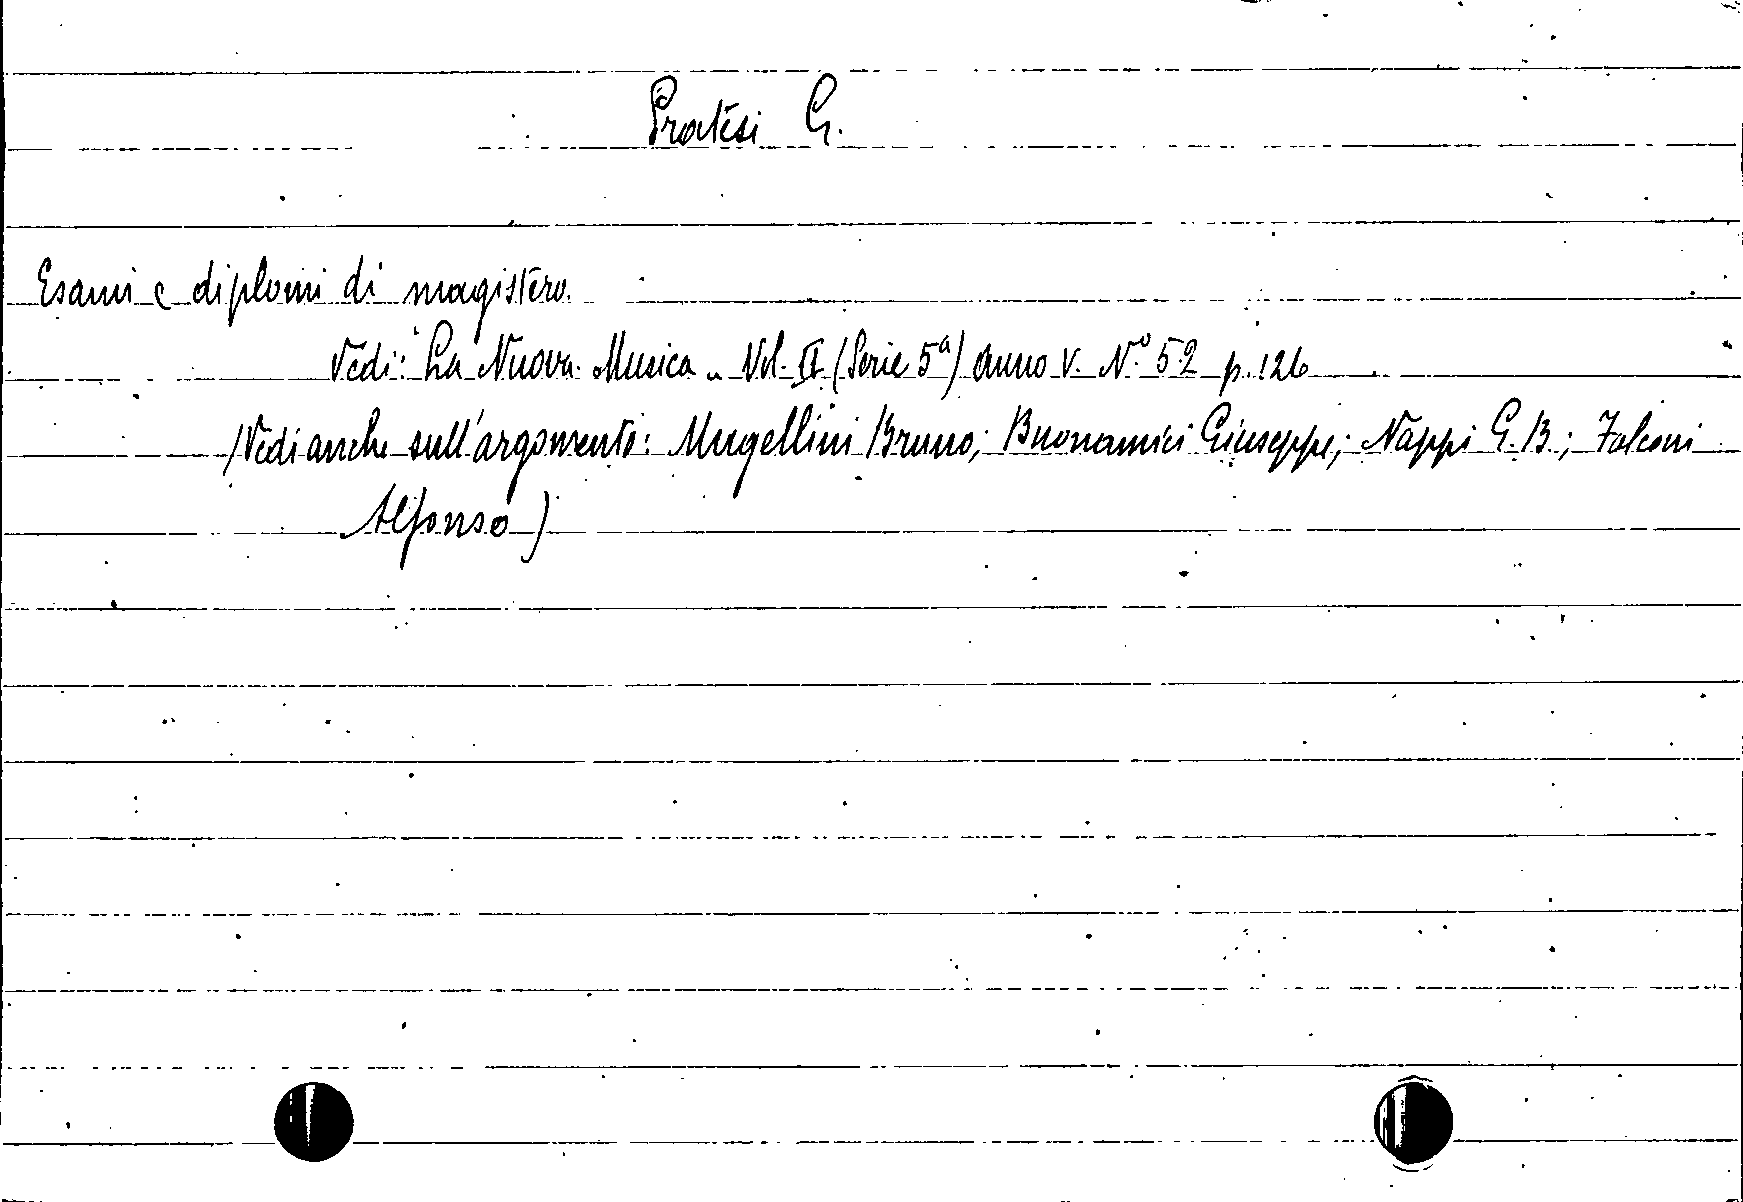 Pratesi G.
Esami e diplomi di magistero.
Vedi: "La Nuova Musica" Vol. II (Serie 5ª) Anno V. N.º 52 p. 126
(Vedi anche sull'argomento: Mugellini Bruno; Buonamici Giuseppe; Nappi G. B.; Falconi
Alfonso)